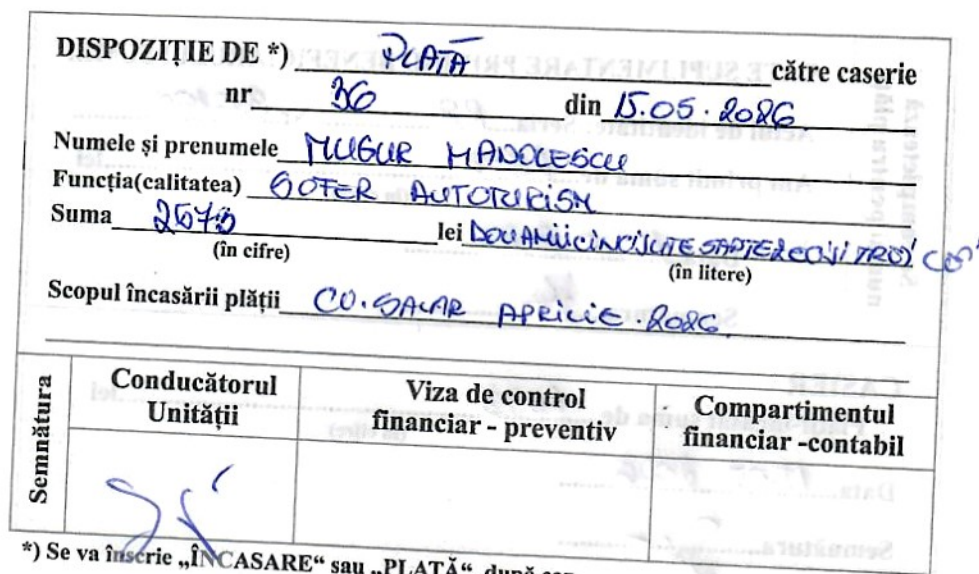 DISPOZIȚIE DE *) PLATĂ către caserie
nr 36 din 15.05.2026
Numele și prenumele MUGUR MANOLESCU
Funcția(calitatea) SOFER AUTOTURISM
Suma 2573 lei DOUAMIICINCISUTESAPTEZECISITREI
(în cifre) (în litere)
Scopul încasării plății CO. SALAR APRILIE. 2026
Semnătura
Conducătorul Unității
Viza de control financiar - preventiv
Compartimentul financiar -contabil
*) Se va înscrie „ÎNCASARE“ sau „PLATĂ“, după